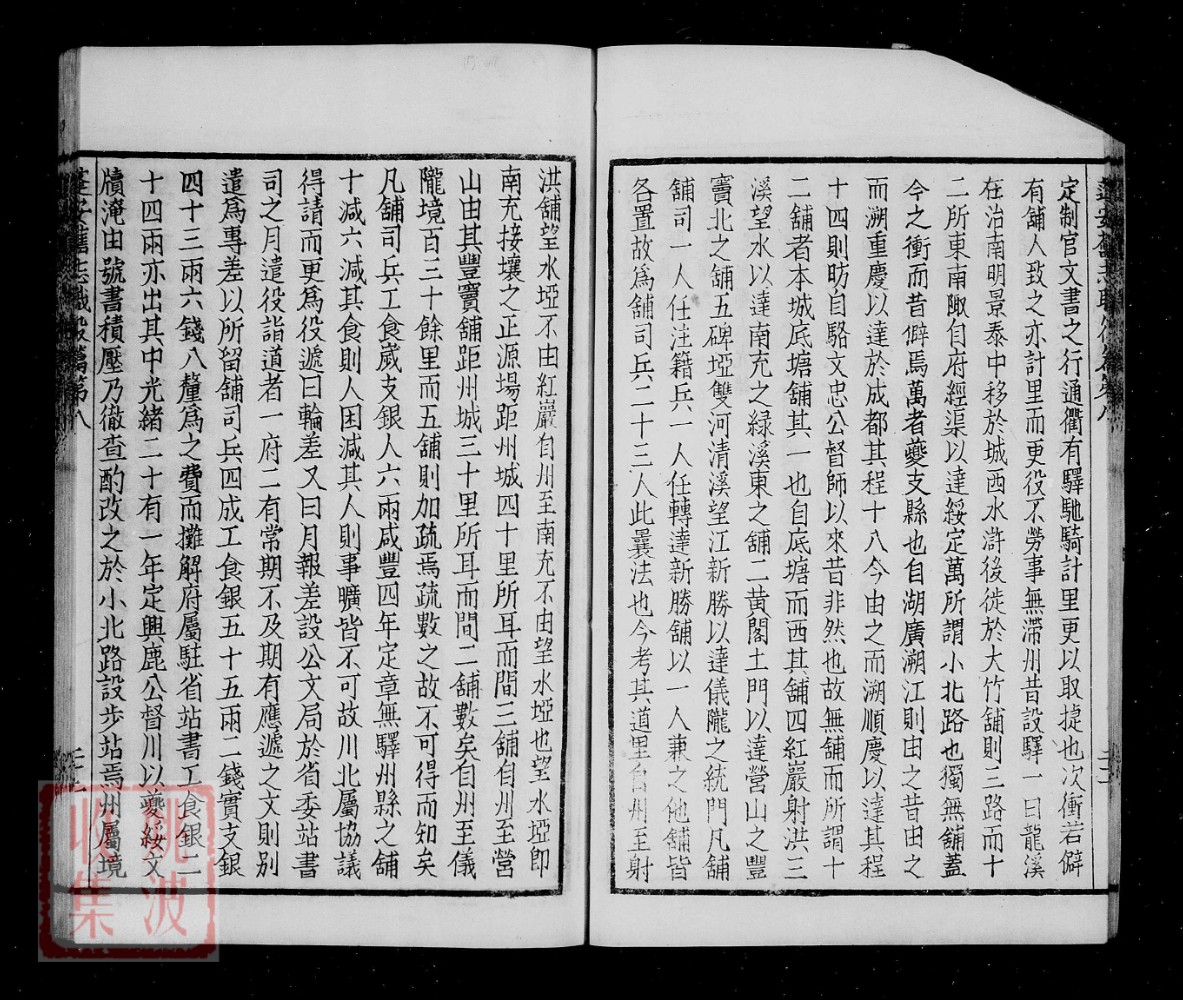 定制官文書之行通衢有驛馳騎計里更以取捷也次衝若僻
有舖人致之亦計里而更役不勞事無滯州昔設驛一曰龍溪
在治南明景泰中移於城西水滸後徙於大竹舖則三路而十
二所東南陬自府經渠以達綏定萬所謂小北路也獨無舖蓋
今之衝而昔僻焉萬者夔支縣也自湖廣溯江則由之昔由之
而溯重慶以達於成都其程十八今由之而溯順慶以達其程
十四則昉自駱文忠公督師以來昔非然也故無舖而所謂十
二舖者本城底塘舖其一也自底塘而西其舖四紅巖射洪三
溪望水以達南充之緑溪東之舖二黃閣土門以達營山之豐
竇北之舖五碑埡雙河清溪望江新勝以達儀隴之統門凡舖
舖司一人任注籍兵一人任轉達新勝舖以一人兼之他舖皆
各置故爲舖司兵二十三人此曩法也今考其道里自州至射
洪舖望水埡不由紅巖自州至南充不由望水埡也望水埡卽
南充接壤之正源場距州城四十里所耳而間三舖自州至營
山由其豐竇舖距州城三十里所耳而間二舖數矣自州至儀
隴境百三十餘里而五舖則加疏焉疏數之故不可得而知矣
凡舖司兵工食歲支銀人六兩咸豐四年定章無驛州縣之舖
十減六減其食則人困減其人則事曠皆不可故川北屬協議
得請而更爲役遞曰輪差又曰月報差設公文局於省委站書
司之月遣役詣道者一府二有常期不及期有應遞之文則别
遣爲專差以所留舖司兵四成工食銀五十五兩二錢實支銀
四十三兩六錢八釐爲之費而攤解府屬駐省站書工食銀二
十四兩亦出其中光緒二十有一年定興鹿公督川以夔綏文
牘淹由號書積壓乃徹查酌改之於小北路設步站焉州屬境
蓬安舊志識殷篇第八
收 波
集